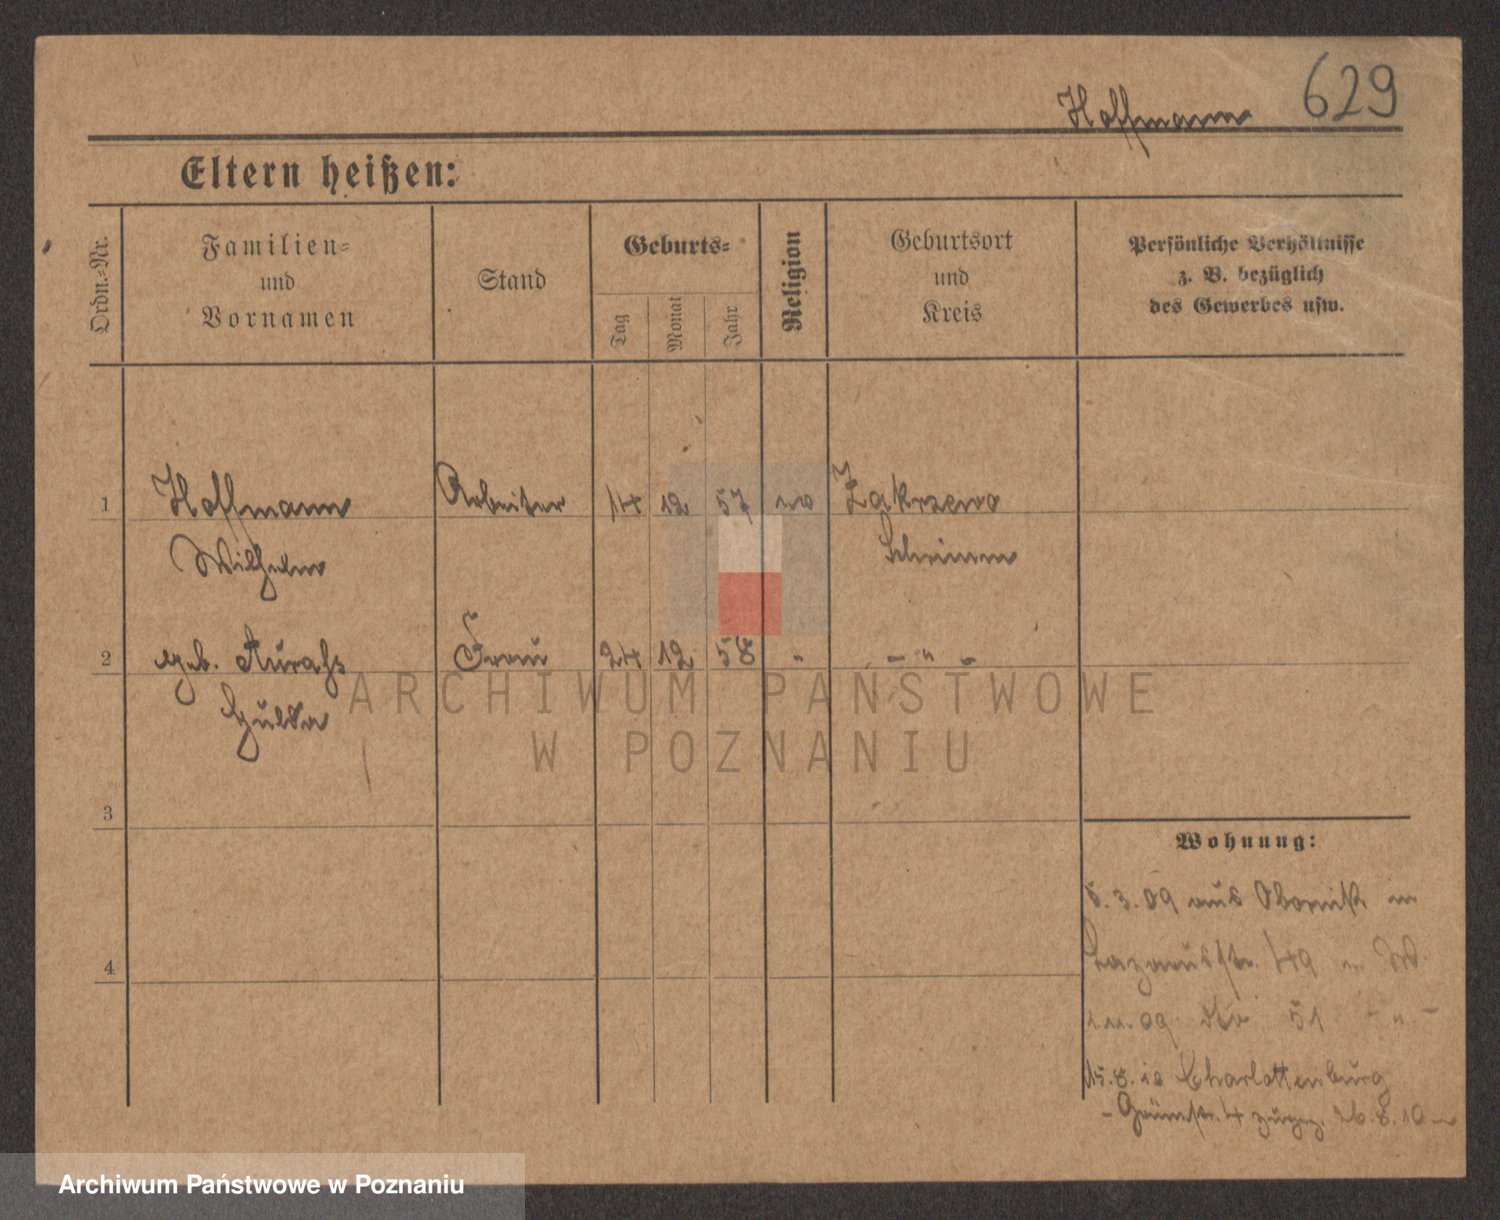 Hoffmann 629
Eltern heißen:
Ordn.=Nr.
Familien=
und
Vornamen
Stand
Geburts=
Tag
Monat
Jahr
Religion
Geburtsort
und
Kreis
Persönliche Verhältnisse
z. B. bezüglich
des Gewerbes usw.
1 Hoffmann Arbeiter 14 12 57 Zakrzewo
Wilhelm Schrimm
2 geb. Frau 24 12 58 " - " -
Hulda
3
4
Wohnung:
5.3.09 aus Obornik in
Lazarusstr. 49 W.
1.11.09 51 - " -
15.8.10 Charlottenburg
- Grünstr. 4 zurück 26.8.10
ARCHIWUM PAŃSTWOWE
W POZNANIU
Archiwum Państwowe w Poznaniu